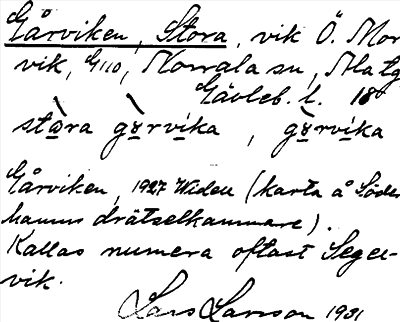 Gårviken, Stora, vik Ö. Mor
vik, G110, Norrala sn, Ala tg
Gävleb. l. 18
stòra gɣ̀rvika, gɣ̀rvika
Gårviken, 1927 Widell (karta å Söder
hamns drätselkammare).
Kallas numera oftast Segel-
vik.
Lars Larsson 1931